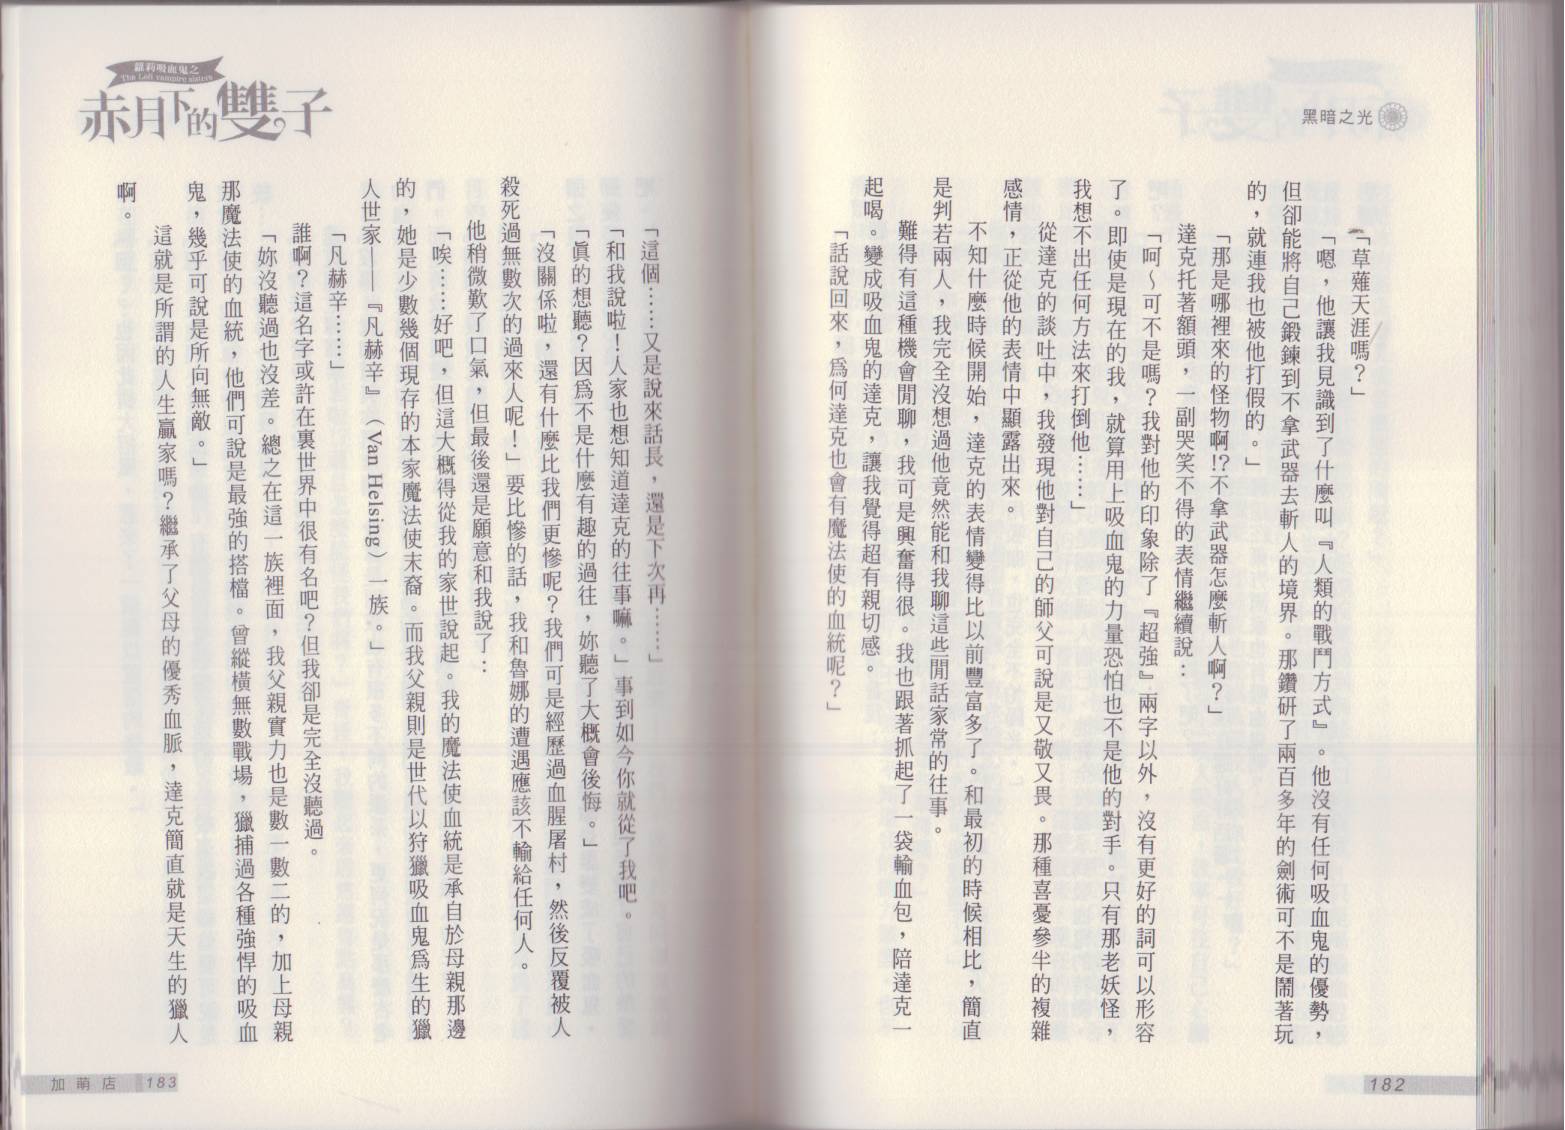 黑暗之光
「草薙天涯嗎？」
「嗯，他讓我見識到了什麼叫『人類的戰鬥方式』。他沒有任何吸血鬼的優勢，
但卻能將自己鍛鍊到不拿武器去斬人的境界。那鑽研了兩百多年的劍術可不是鬧著玩
的，就連我也被他打假的。」
「那是哪裡來的怪物啊!?不拿武器怎麼斬人啊？」
達克托著額頭，一副哭笑不得的表情繼續說：
「呵～可不是嗎？我對他的印象除了『超強』兩字以外，沒有更好的詞可以形容
了。即使是現在的我，就算用上吸血鬼的力量恐怕也不是他的對手。只有那老妖怪，
我想不出任何方法來打倒他……」
從達克的談吐中，我發現他對自己的師父可說是又敬又畏。那種喜憂參半的複雜
感情，正從他的表情中顯露出來。
不知什麼時候開始，達克的表情變得比以前豐富多了。和最初的時候相比，簡直
是判若兩人，我完全沒想過他竟然能和我聊這些閒話家常的往事。
難得有這種機會閒聊，我可是興奮得很。我也跟著抓起了一袋輸血包，陪達克一
起喝。變成吸血鬼的達克，讓我覺得超有親切感。
「話說回來，為何達克也會有魔法使的血統呢？」
182
蘿莉吸血鬼之
The Loli vampire sisters
赤月下的雙子
「這個……又是說來話長，還是下次再……」
「和我說啦！人家也想知道達克的往事嘛。」事到如今你就從了我吧。
「真的想聽？因為不是什麼有趣的過往，妳聽了大概會後悔。」
「沒關係啦，還有什麼比我們更慘呢？我們可是經歷過血腥屠村，然後反覆被人
殺死過無數次的過來人呢！」要比慘的話，我和魯娜的遭遇應該不輸給任何人。
他稍微歎了口氣，但最後還是願意和我說了：
「唉……好吧，但這大概得從我的家世說起。我的魔法使血統是承自於母親那邊
的，她是少數幾個現存的本家魔法使末裔。而我父親則是世代以狩獵吸血鬼為生的獵
人世家——『凡赫辛』（Van Helsing）一族。」
「凡赫辛……」
誰啊？這名字或許在裏世界中很有名吧？但我卻是完全沒聽過。
「妳沒聽過也沒差。總之在這一族裡面，我父親實力也是數一數二的，加上母親
那魔法使的血統，他們可說是最強的搭檔。曾縱橫無數戰場，獵捕過各種強悍的吸血
鬼，幾乎可說是所向無敵。」
這就是所謂的人生贏家嗎？繼承了父母的優秀血脈，達克簡直就是天生的獵人
啊。
加萌店 183